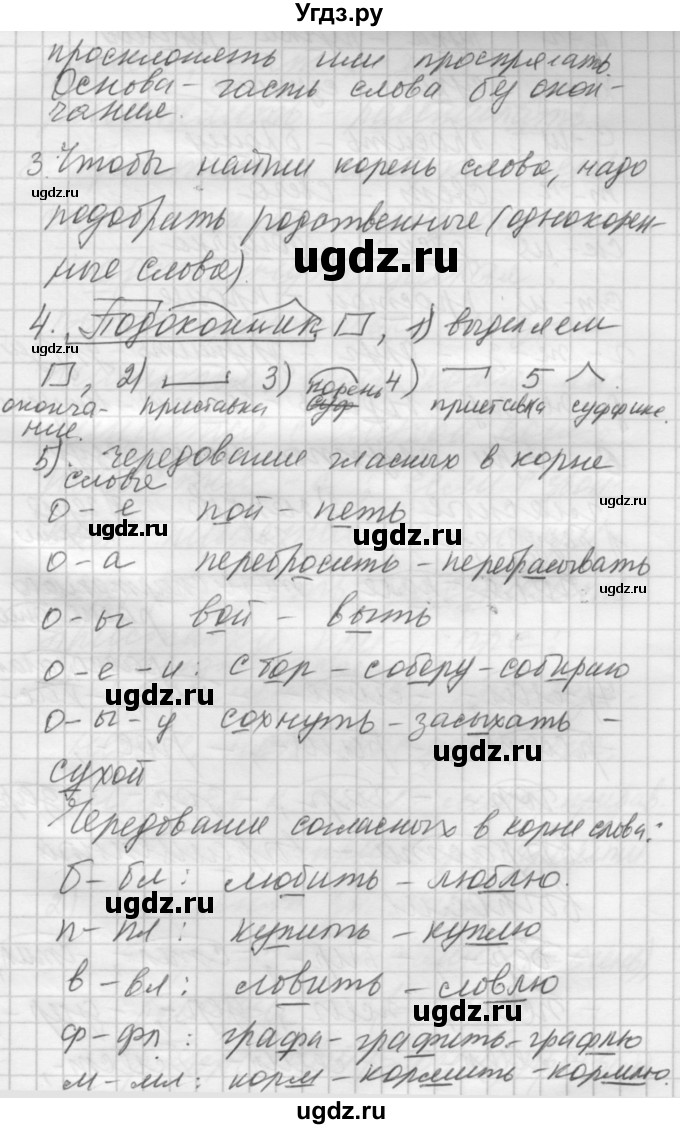 Угдз.ру
просклонять или проспрягать.
Основа - часть слова без окон-
чания.
3. Чтобы найти корень слова, надо
подобрать родственные (однокорен-
ные слова).
4. Подоконник, 1) выделяем
2) 3) корень 4) 5
оконча- приставка суф приставка суффикс.
ние.
5). чередование гласных в корне
слова
о-е пой - петь
о-а перебросить - перебрасывать
о-ы вой - выть
о-е-и: сбор - соберу - собираю
о-ы-у сохнуть - засыхать -
сухой
Чередование согласных в корне слова:
б-бл: любить - люблю.
п-пл: купить - куплю
в-вл: ловить - словлю
ф-фл: графа - графить - графлю
м-мл: корм - кормить - кормлю.
ugdz.ru
ugdz.ru
ugdz.ru
ugdz.ru
ugdz.ru
ugdz.ru
ugdz.ru
ugdz.ru
ugdz.ru
ugdz.ru
ugdz.ru
ugdz.ru
ugdz.ru
ugdz.ru